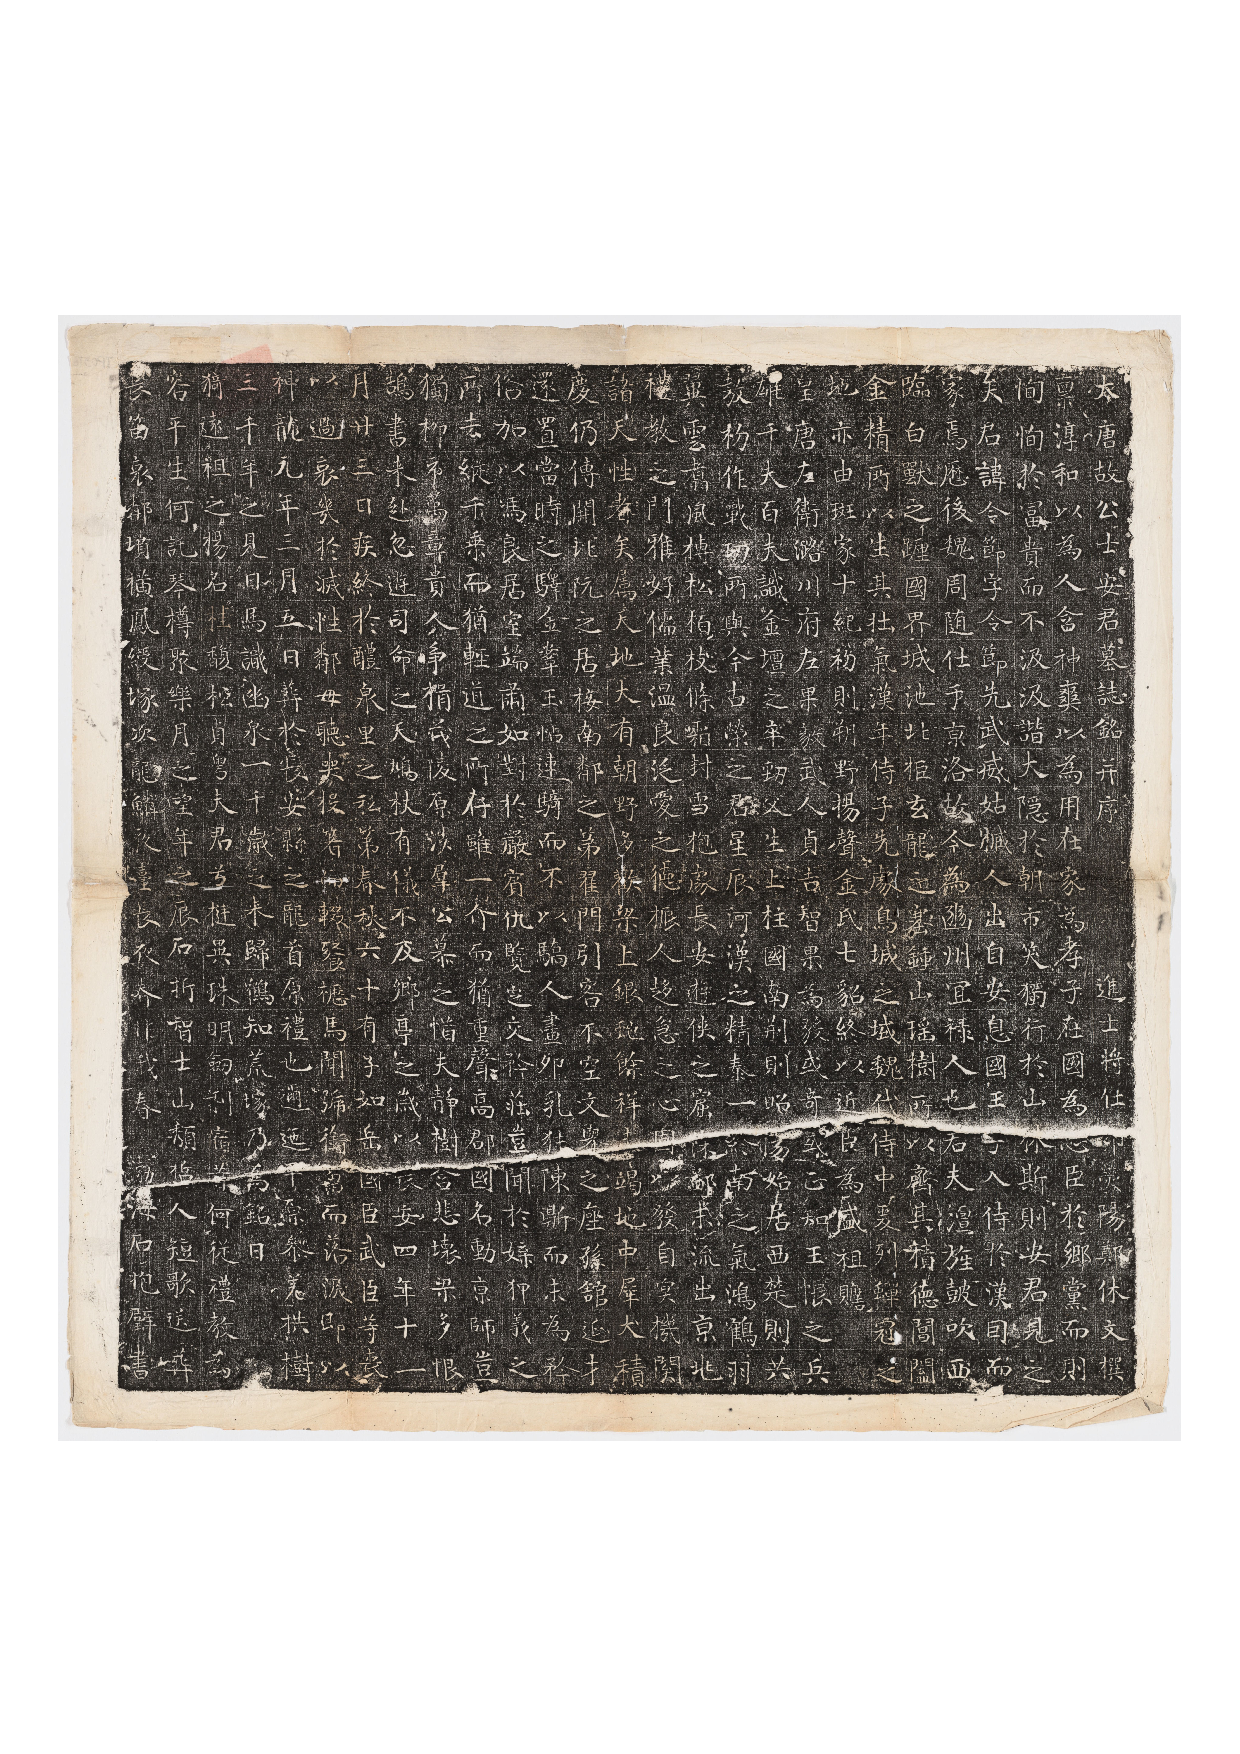 大唐故公士安君墓誌銘并序 進士將仕郎滎陽鄭休文撰
稟淳和以為人含神爽以為用在家為孝子在國為忠臣於鄉黨而則
恂恂於富貴而不汲汲諧大隱於朝市笑獨行於山林斯則安君見之
矣君諱令節字令節先武威姑臧人出自安息國王子入侍於漢因而
家焉歷後魏周隨仕于京洛故今為豳州宜祿人也若夫澶旌鼓吹西
臨白獸之躔國界城池北拒玄龍之塞鍾山瑤樹所以齊其積德閶闔
金精所以生其壯氣漢年侍子先處烏城之域魏代侍中爰列蟬冠之
地亦由班家十紀初則朔野揚聲金氏七貂終以近臣為盛祖瞻
皇唐左衛潞川府左果毅武人貞吉智果為毅或奇或正知玉帳之兵
雄千夫百夫識金壇之卒勁父生上柱國南荊則昭陽始居西楚則共
敖初作戰功所與今古榮之君星辰河漢之精泰一終南之氣鴻鶴羽
翼雲翥風摶松柏枝條霜封雪抱處長安遊俠之窟深鄙末流出京兆
禮教之門雅好儒業溫良泛愛之德振人趍急之心固以發自冥機關
諸天性者矣屬天地大有朝野多歡梁上銀虵餘祥未竭地中犀犬積
慶仍傳開北阮之居接南鄰之第翟門引客不空文舉之座孫館延才
還置當時之驛金鞍玉怗連騎而不以驕人畫卵乳犢陳鼎而未為矜
俗加以馮良居室端肅如對於嚴賓仇覽定交矜莊豈聞於媟狎義之
所去縱千乘而猶輕道之所存雖一介而猶重聲高郡國名動京師豈
獨柳市萬章貴人爭揖茂陵原涉群公慕之惜夫靜樹含悲壞梁多恨
鵠書來赴忽遊司命之天鳩杖有儀不及鄉亭之歲以長安四年十一
月廿三日疾終於醴泉里之私第春秋六十有子如岳國臣武臣等喪
以過哀幾於滅性鄰母聽哭投箸而輟飡櫪馬聞號銜蒭而落淚即以
神龍元年三月五日葬於長安縣之龍首原禮也邐迤平原參差拱樹
三千年之見日馬識幽泉一千歲之來歸鶴知荒塚乃為銘曰
猗遠祖之揚名桂馥松貞粵夫君之挺異珠明劍利宿昔何從禮教為
容平生何託琴樽聚樂月之望年之辰石折智士山頹哲人短歌送葬
長笛哀鄰墳橫鳳綬塚次龍鱗久臺長夜兮非我春 渤海石抱璧書